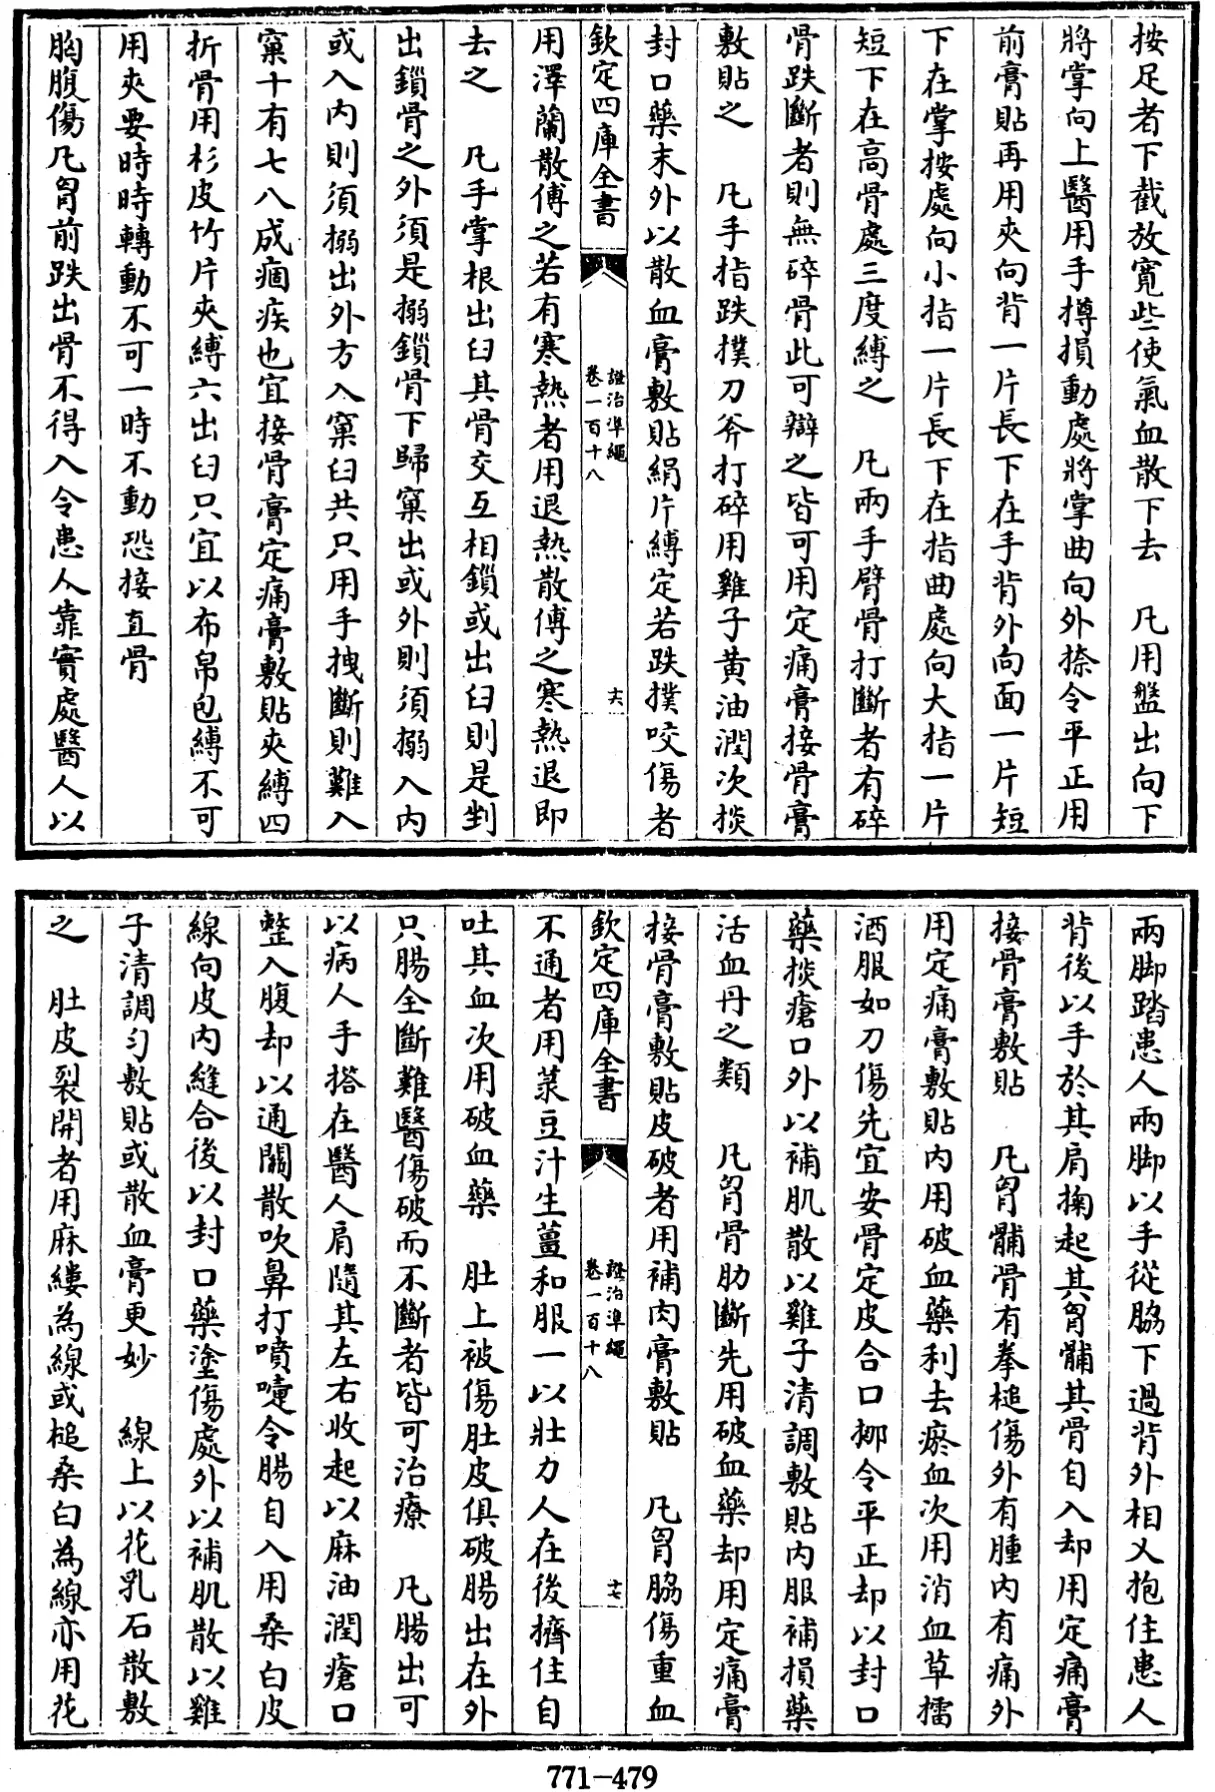 按足者下截放寬些使氣血散下去　凡用盤出向下
將掌向上醫用手搏損動處將掌曲向外捺令平正用
前膏貼再用夾向背一片長下在手背外向面一片短
下在掌按處向小指一片長下在指曲處向大指一片
短下在高骨處三度縛之　凡兩手臂骨打斷者有碎
骨跌斷者則無碎骨此可辯之皆可用定痛膏接骨膏
敷貼之　凡手指跌撲刀斧打碎用雞子黃油潤次掞
封口藥末外以散血膏敷貼絹片縛定若跌撲咬傷者
欽定四庫全書
證治準繩
卷一百十八
十六
用澤蘭散傅之若有寒熱者用退熱散傅之寒熱退即
去之　凡手掌根出臼其骨交互相鎖或出臼則是剉
出鎖骨之外須是搦鎖骨下歸窠出或外則須搦入內
或入內則須搦出外方入窠臼共只用手拽斷則難入
窠十有七八成痼疾也宜接骨膏定痛膏敷貼夾縛四
折骨用杉皮竹片夾縛六出臼只宜以布帛包縛不可
用夾要時時轉動不可一時不動恐接直骨
胸腹傷凡胷前跌出骨不得入令患人靠實處醫人以
兩腳踏患人兩腳以手從脇下過背外相叉抱住患人
背後以手於其肩掬起其胷脯其骨自入却用定痛膏
接骨膏敷貼　凡胷脯骨有拳槌傷外有腫內有痛外
用定痛膏敷貼內用破血藥利去瘀血次用消血草擂
酒服如刀傷先宜安骨定皮合口挪令平正却以封口
藥掞瘡口外以補肌散以雞子清調敷貼內服補損藥
活血丹之類　凡胷骨肋斷先用破血藥却用定痛膏
接骨膏敷貼皮破者用補肉膏敷貼　凡胷脇傷重血
欽定四庫全書
證治準繩
卷一百十八
十七
不通者用菉豆汁生薑和服一以壯力人在後擠住自
吐其血次用破血藥　肚上被傷肚皮俱破腸出在外
只腸全斷難醫傷破而不斷者皆可治療　凡腸出可
以病人手搭在醫人肩隨其左右收起以麻油潤瘡口
整入腹却以通關散吹鼻打噴嚏令腸自入用桑白皮
線向皮內縫合後以封口藥塗傷處外以補肌散以雞
子清調勻敷貼或散血膏更妙　線上以花乳石散敷
之　肚皮裂開者用麻縷為線或槌桑白為線亦用花
771-479